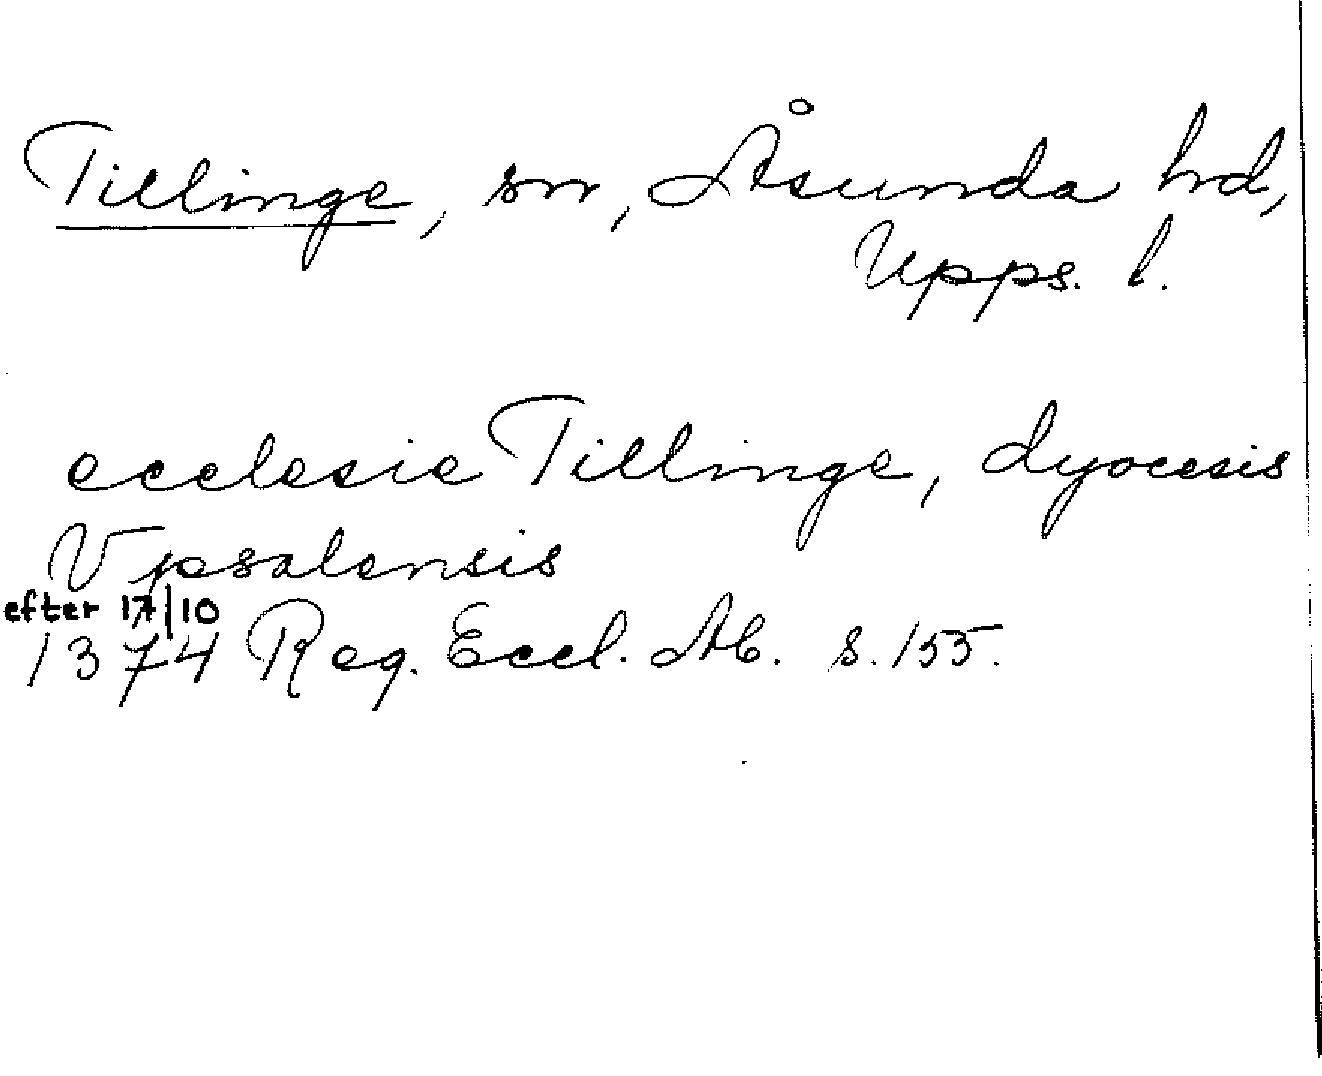 Tillinge, sn, Åsunda hd,
Upps. l.
ecclesie Tillinge, dyocesis
Vpsalensis
efter 17/10
1374 Reg. Eccl. Ab. s. 155.